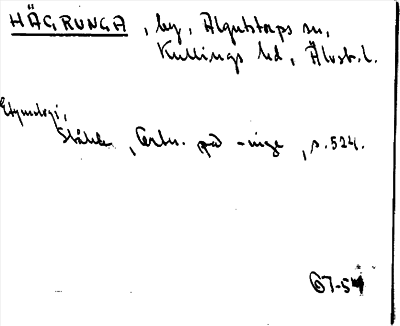 HÄGRUNGA, by, Algutstorps sn,
Kullings hd, Älvsb. l.
Etymologi,
Ståhle, Ortn. på -inge, s. 524.